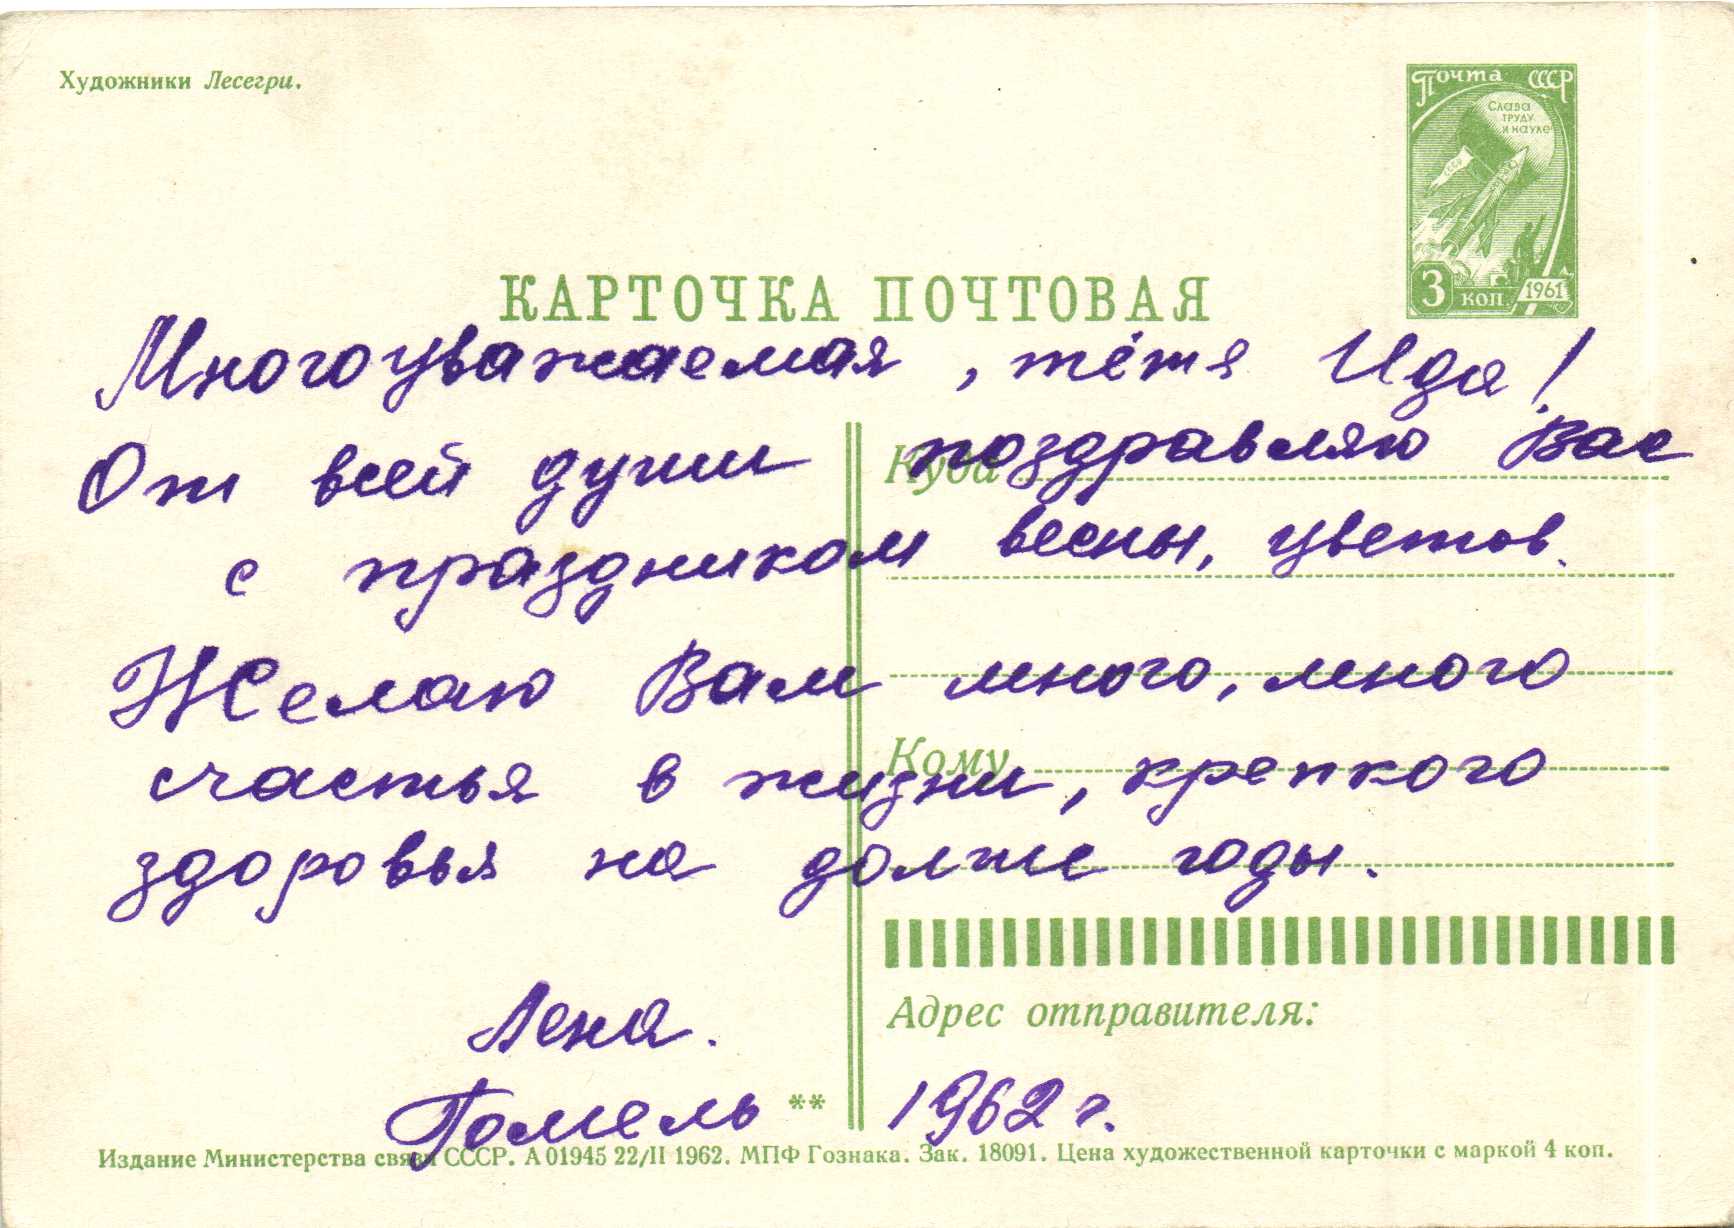 Художники Лесегри.
Почта СССР
Слава
труду
и науке
СССР
3 коп. 1961
КАРТОЧКА ПОЧТОВАЯ
Многоуважаемая, тётя Ида!
От всей души поздравляю Вас
Куда
с праздником весны, цветов.
Желаю Вам много, много
Кому
счастья в жизни, крепкого
здоровья на долгие годы.
Адрес отправителя:
Лена.
Гомель ** 1962 г.
Издание Министерства связи СССР. А 01945 22/II 1962. МПФ Гознака. Зак. 18091. Цена художественной карточки с маркой 4 коп.